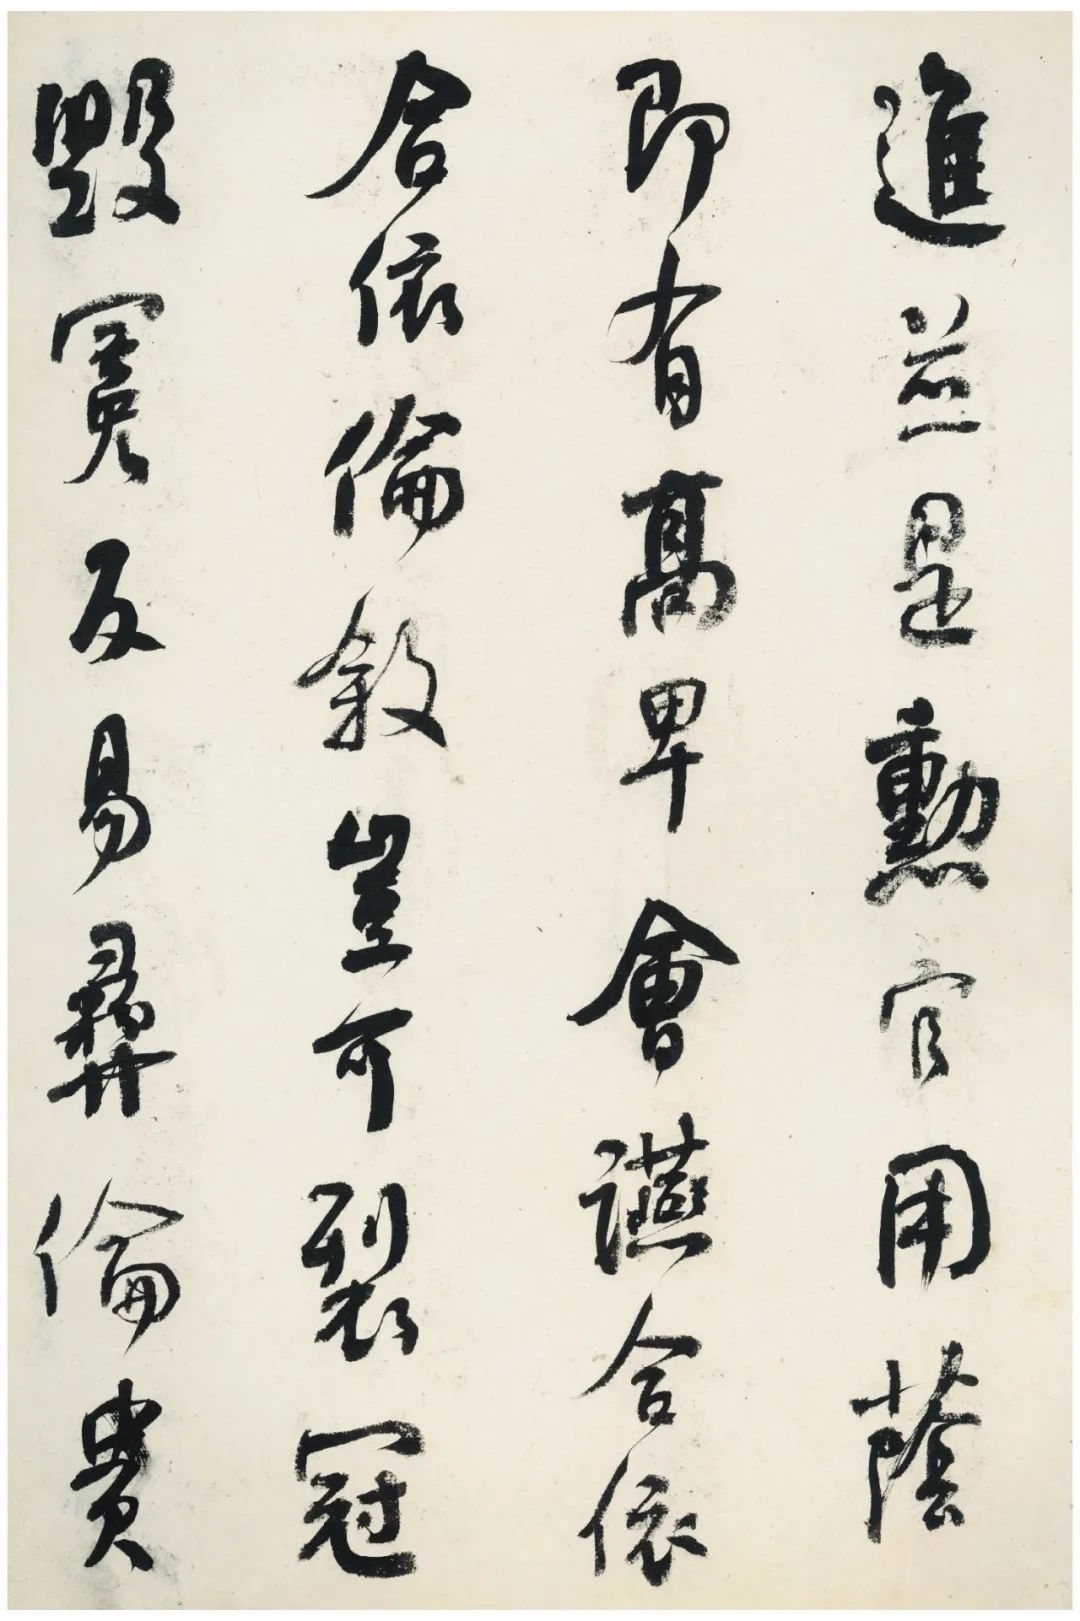 進並是勳官用蔭
即有高卑會讌合依
合依倫敘豈可裂冠
毀冕反易彝倫貴